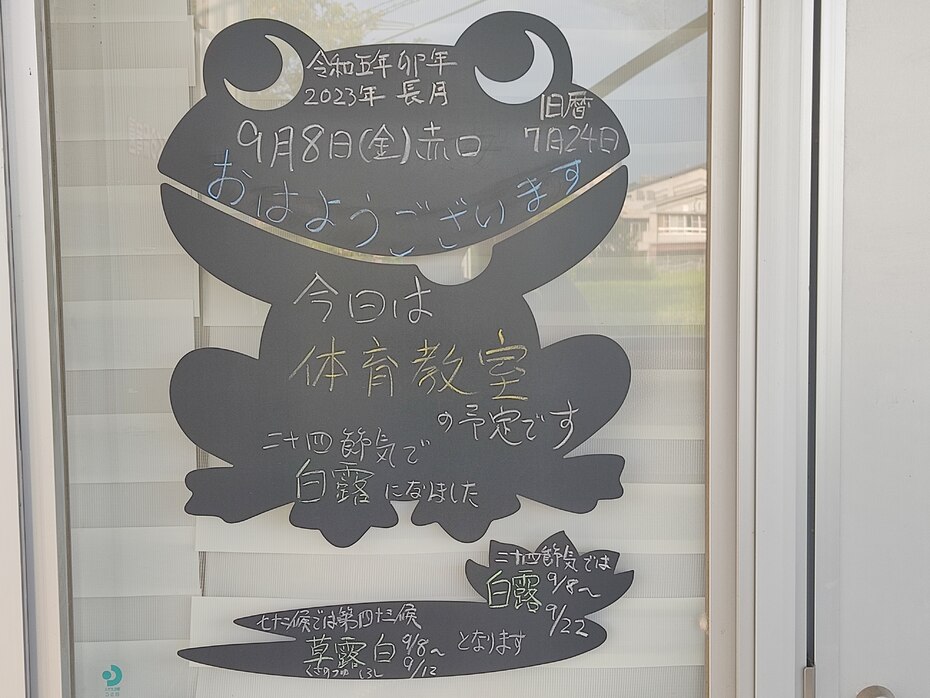 令和五年卯年
2023年 長月
旧暦
7月24日
9月8日(金)赤口
おはようございます
今日は
体育教室
の予定です
二十四節気で
白露になりました
二十四節気では
白露9/8〜
9/22
七十二候では第四十三候
草露白9/8〜
9/12
くさのつゆしろし
となります